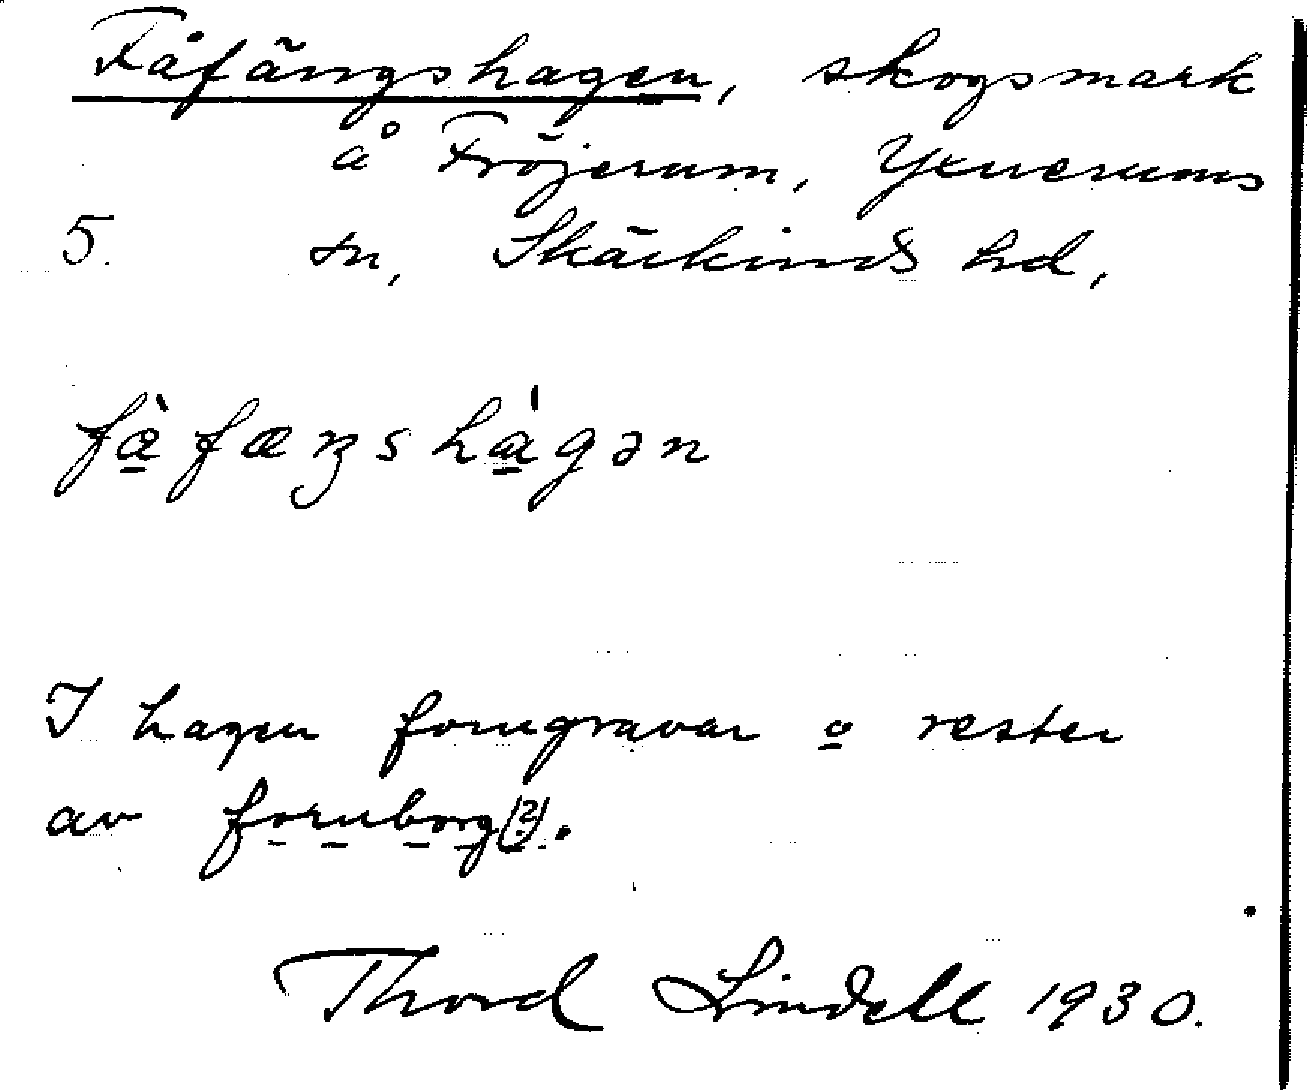 Fåfängshagen, skogsmark
å Fröjerum, Yxnerums
5. sn, Skärkinds hd,
fæ̀fæŋshágən
I hagen forngravar o rester
av fornborg(?).
Thord Lindell 1930.